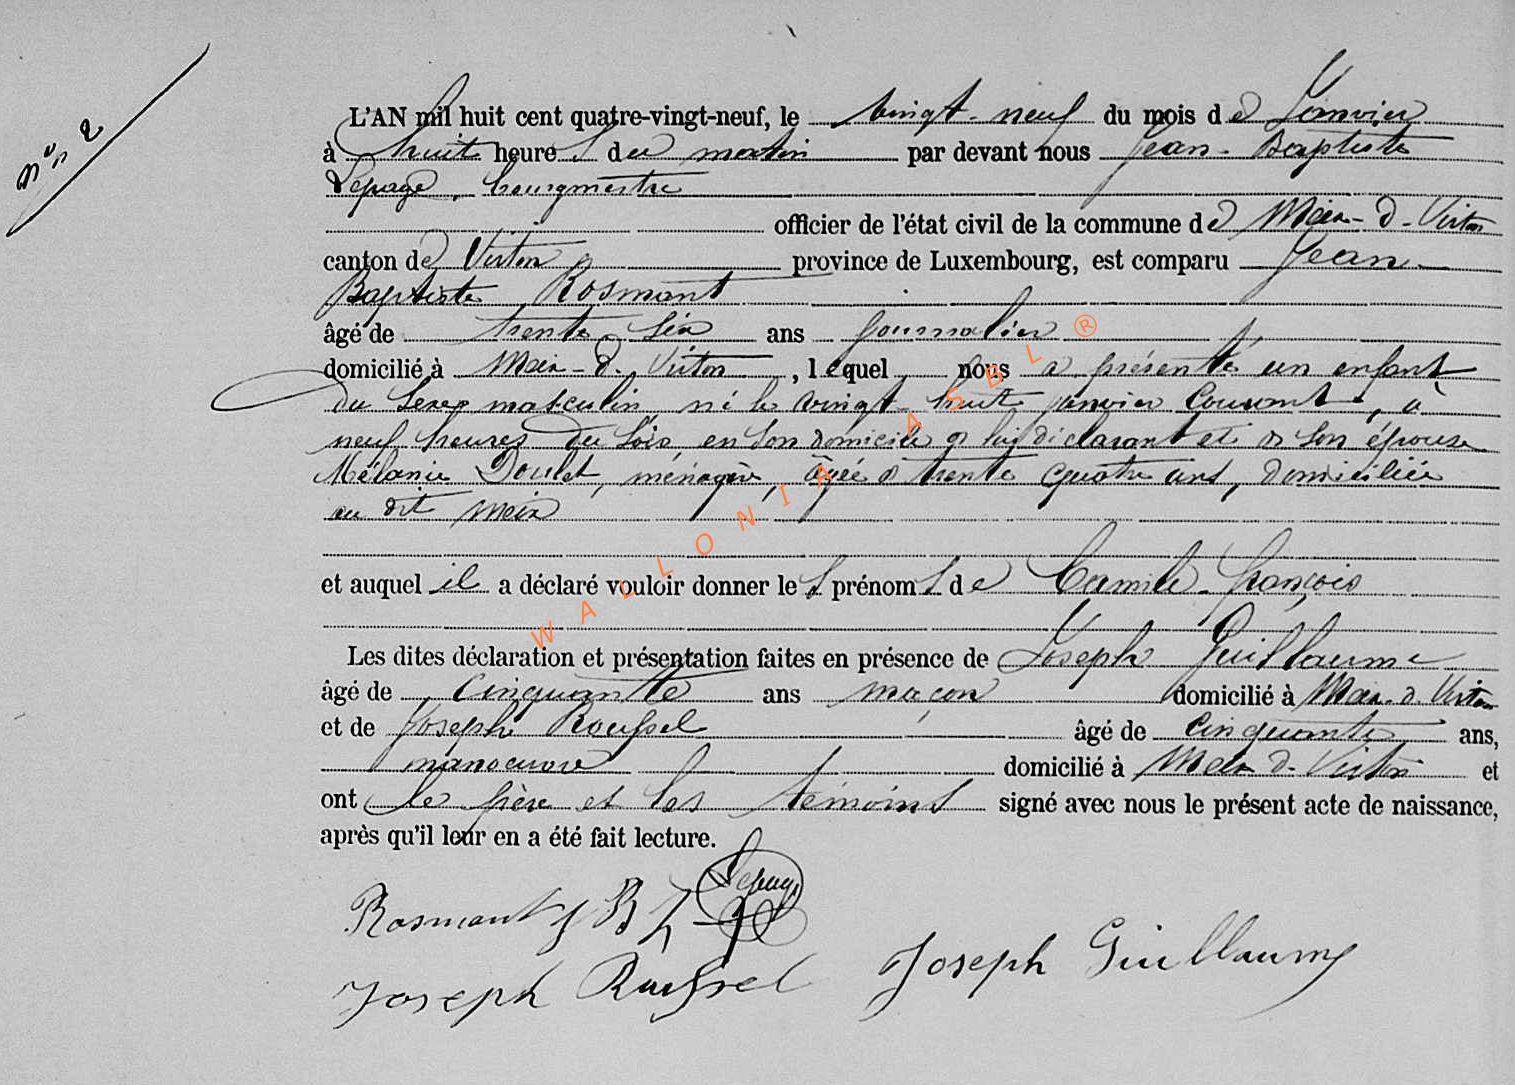 N° 2
L'AN mil huit cent quatre-vingt-neuf, le vingt-neuf du mois de Janvier
à huit heures du matin par devant nous Jean-Baptiste
Lepage, bourgmestre
officier de l'état civil de la commune de Meix-d-Virton
canton de Virton province de Luxembourg, est comparu Jean
Baptiste Rosmant
âgé de trente six ans journalier
domicilié à Meix-d-Virton, lequel nous a présenté un enfant
du sexe masculin, né le vingt-huit janvier courant, à
neuf heures du soir en son domicile de lui déclarant et de son épouse
Mélanie Doulet, ménagère, âgée de trente quatre ans, domiciliée
au dit Meix
et auquel il a déclaré vouloir donner les prénoms de Camile François
Les dites déclaration et présentation faites en présence de Joseph Guillaume
âgé de cinquante ans maçon domicilié à Meix-d-Virton
et de Joseph Roussel âgé de cinquante ans,
manoeuvre domicilié à Meix-d-Virton et
ont le père et les témoins signé avec nous le présent acte de naissance,
après qu'il leur en a été fait lecture.
Rosmant J B Lepage
Joseph Roussel Joseph Guillaume
WALLONIA ASBL ®